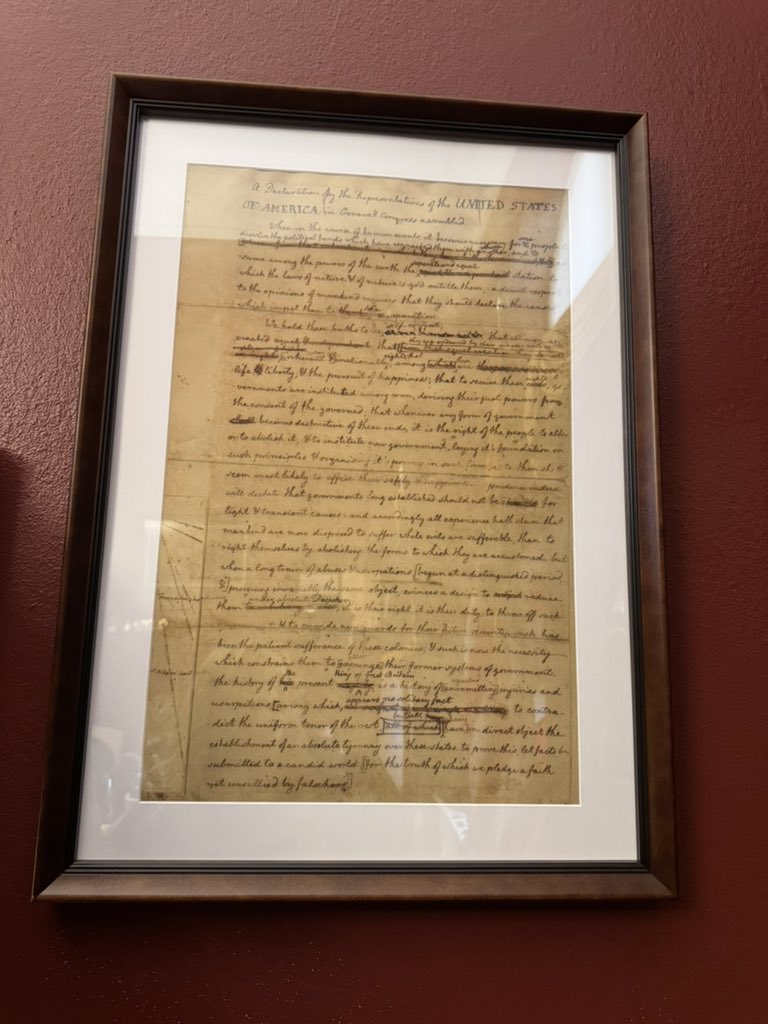 A Declaration by the Representatives of the UNITED STATES
OF AMERICA, in General Congress assembled.
When in the course of human events it becomes necessary for one people to
dissolve the political bands which have connected them with another, and to
-sume among the powers of the earth the separate and equal station to
which the laws of nature & of nature's god entitle them, a decent respect
to the opinions of mankind requires that they should declare the causes
which impel them to the separation.
We hold these truths to be self-evident, that all men are
created equal
rights; that
inherent & inalienable, among which are
life, & liberty, & the pursuit of happiness; that to secure these rights, go
vernments are instituted among men, deriving their just powers from
the consent of the governed; that whenever any form of government
becomes destructive of these ends, it is the right of the people to alter
or to abolish it, & to institute new government, laying it's foundation on
such principles & organising it's powers in such form, as to them shall
seem most likely to effect their safety & happiness. prudence indeed
will dictate that governments long established should not be changed for
light & transient causes: and accordingly all experience hath shewn that
mankind are more disposed to suffer while evils are sufferable, than to
right themselves by abolishing the forms to which they are accustomed. but
when a long train of abuses & usurpations [begun at a distinguished period,
&] pursuing invariably the same object, evinces a design to reduce
under absolute Despotism
them it is their right, it is their duty, to throw off such
& to provide new guards for their future security. such has
been the patient sufferance of these colonies; & such is now the necessity
which constrains them to [expunge] their former systems of government.
the history of the present King of Great Britain is a history of [unremitting] injuries and
usurpations, [among which, appears no solitary fact to contra-
dict the uniform tenor of the rest [all of which] [have] in direct object the
establishment of an absolute tyranny over these states. to prove this, let facts be
submitted to a candid world, [for the truth of which we pledge a faith
yet unsullied by falsehood]